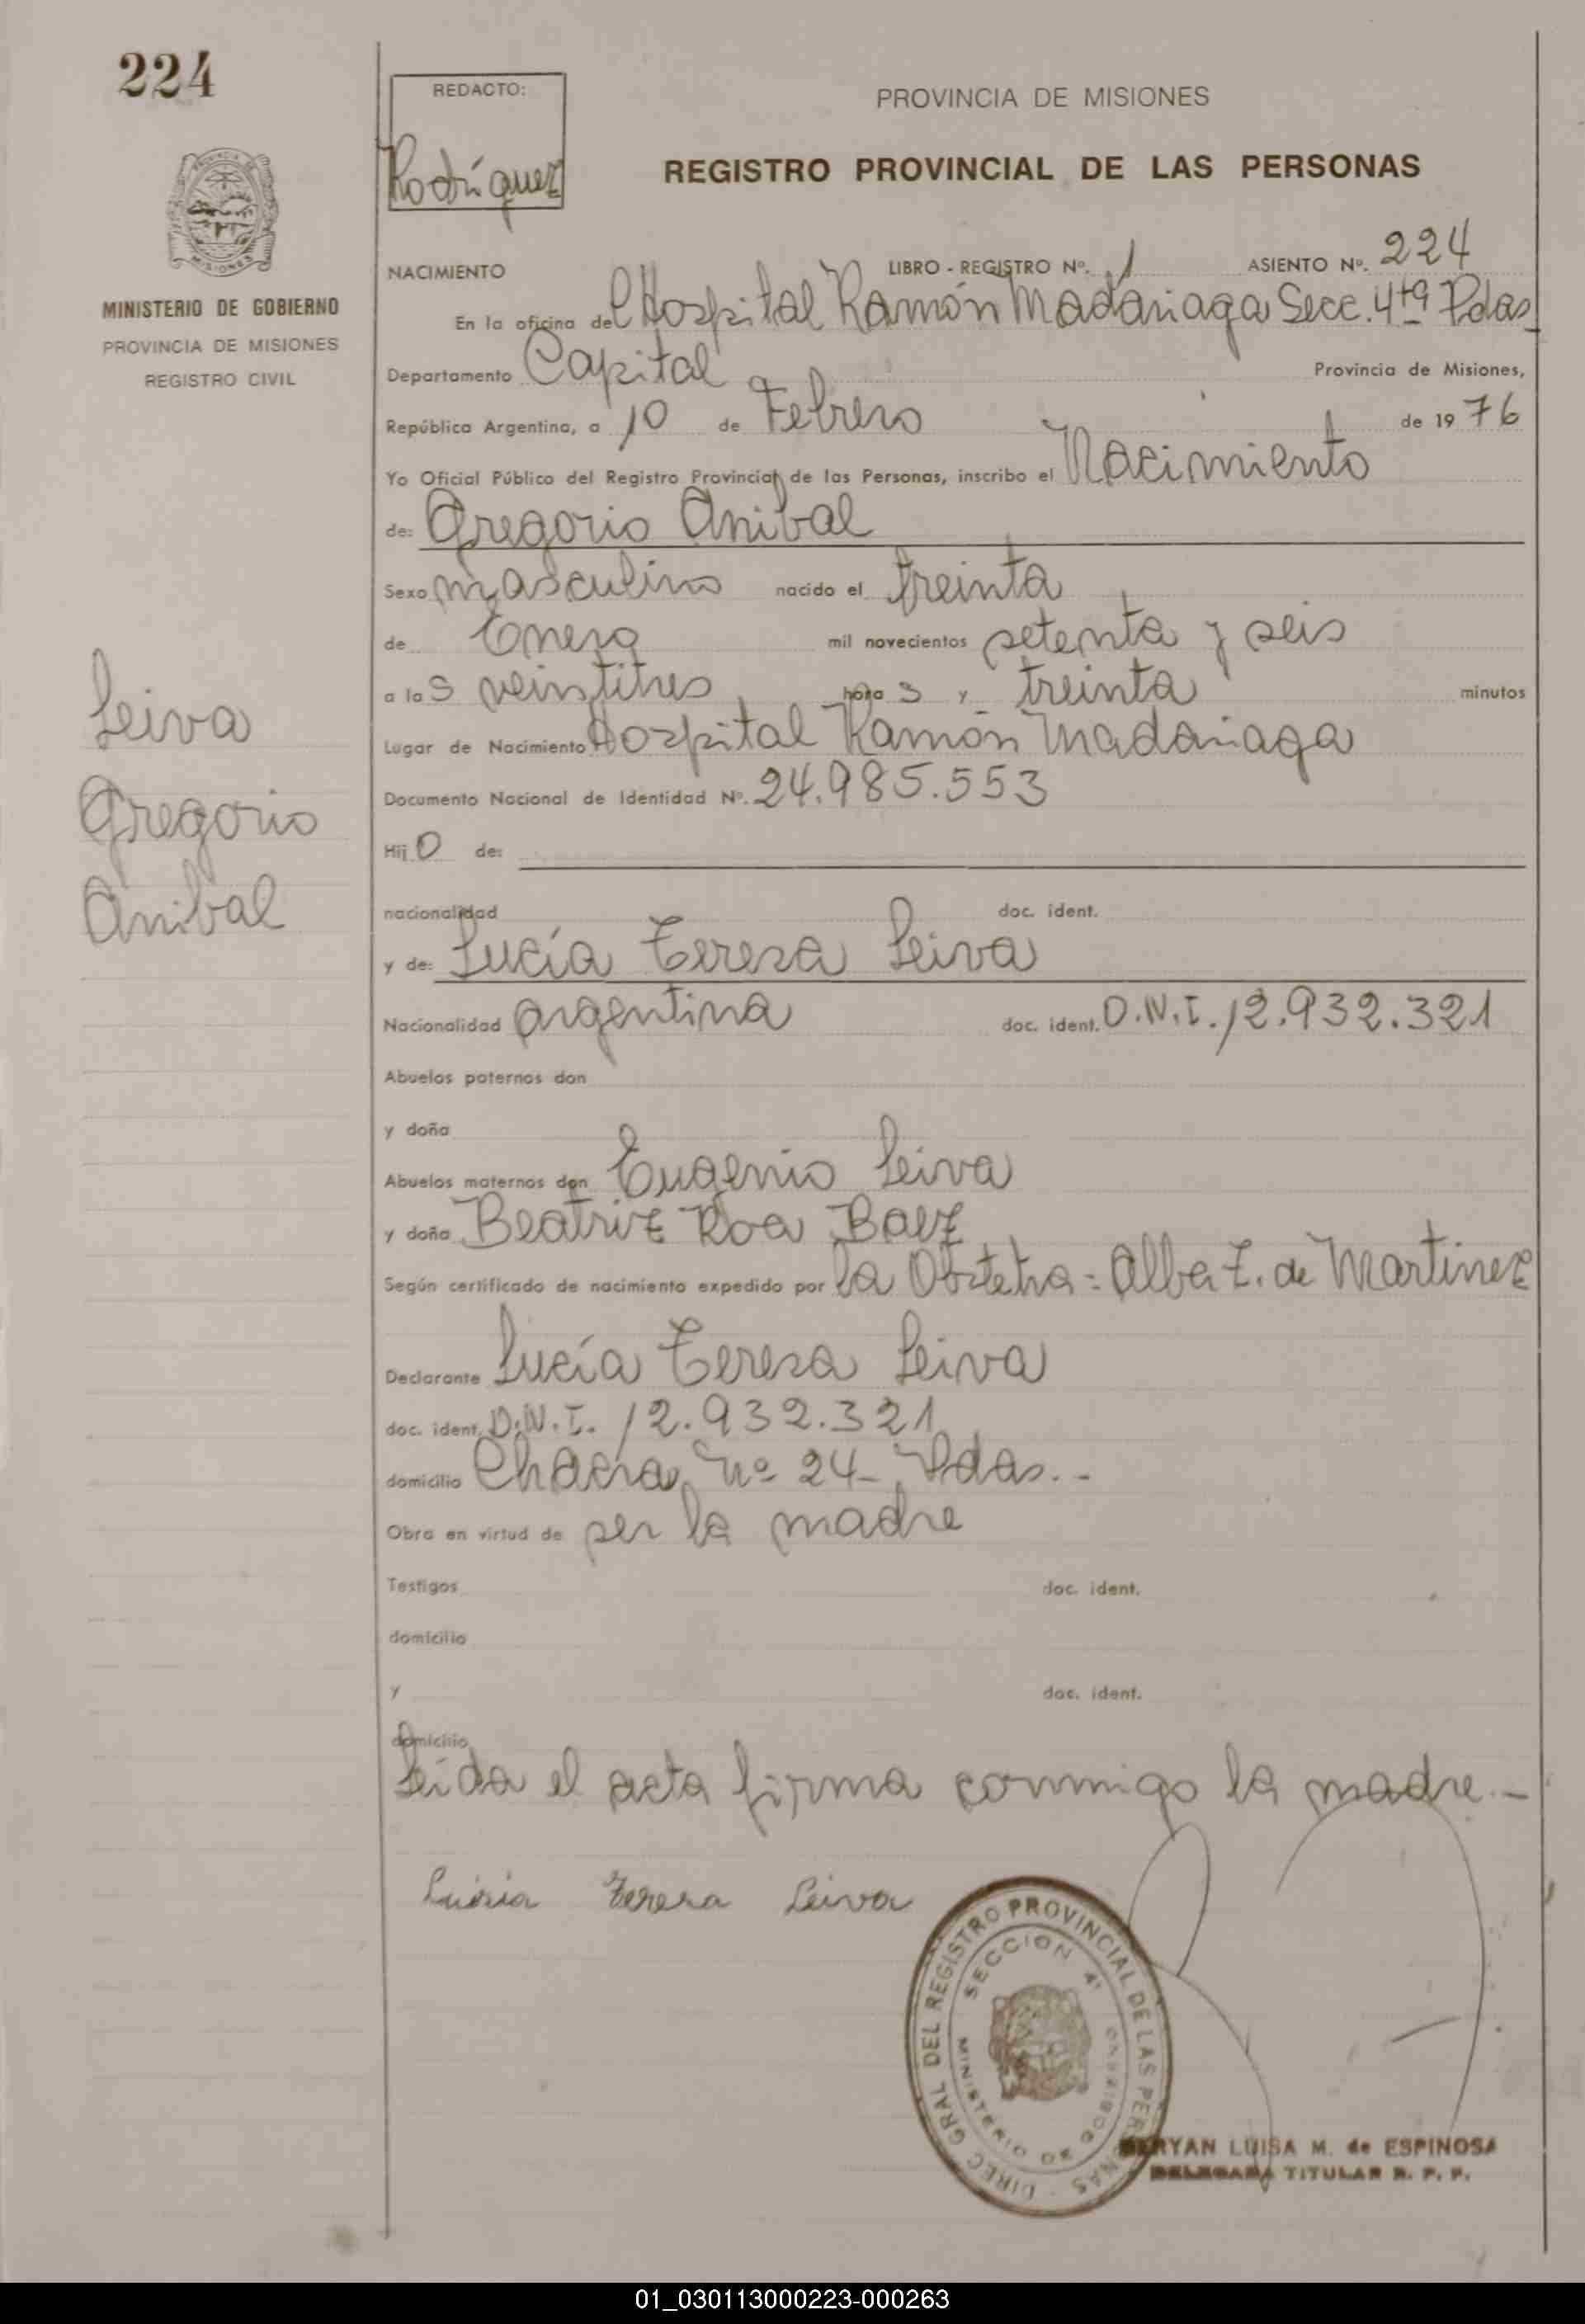 224
REDACTO:
Rodríguez
PROVINCIA DE MISIONES
REGISTRO PROVINCIAL DE LAS PERSONAS
MISIONES
MINISTERIO DE GOBIERNO
PROVINCIA DE MISIONES
REGISTRO CIVIL
NACIMIENTO LIBRO - REGISTRO Nº. 1 ASIENTO Nº. 224
En la oficina del Hospital Ramón Madariaga Secc. 4ta Pdas
Departamento Capital Provincia de Misiones,
República Argentina, a 10 de Febrero de 1976
Yo Oficial Público del Registro Provincial de las Personas, inscribo el Nacimiento
de: Gregorio Anibal
Sexo masculino nacido el treinta
de Enero mil novecientos setenta y seis
a las veintitres horas y treinta minutos
Lugar de Nacimiento Hospital Ramón Madariaga
Documento Nacional de Identidad Nº. 24.985.553
Hijo de:
nacionalidad doc. ident.
y de: Lucía Teresa Leiva
Nacionalidad argentina doc. ident. D.N.I. 12.932.321
Abuelos paternos don
y doña
Abuelos maternos don Eugenio Leiva
y doña Beatriz Roa Baez
Según certificado de nacimiento expedido por la Obstetra = Alba Z. de Martinez
Declarante Lucía Teresa Leiva
doc. ident. D.N.I. 12.932.321
domicilio Chacra Nº 24 - Pdas. -
Obra en virtud de ser la madre
Testigos doc. ident.
domicilio
y doc. ident.
domicilio
Leida el acta firma conmigo la madre. -
Leiva
Gregorio
Anibal
Lucia Teresa Leiva
DIREC. GRAL DEL REGISTRO PROVINCIAL DE LAS PERSONAS
SECCION 4ª
MINISTERIO DE GOBIERNO
LUISA M. de ESPINOSA
DELEGADA TITULAR R. P. P.
01_030113000223-000263